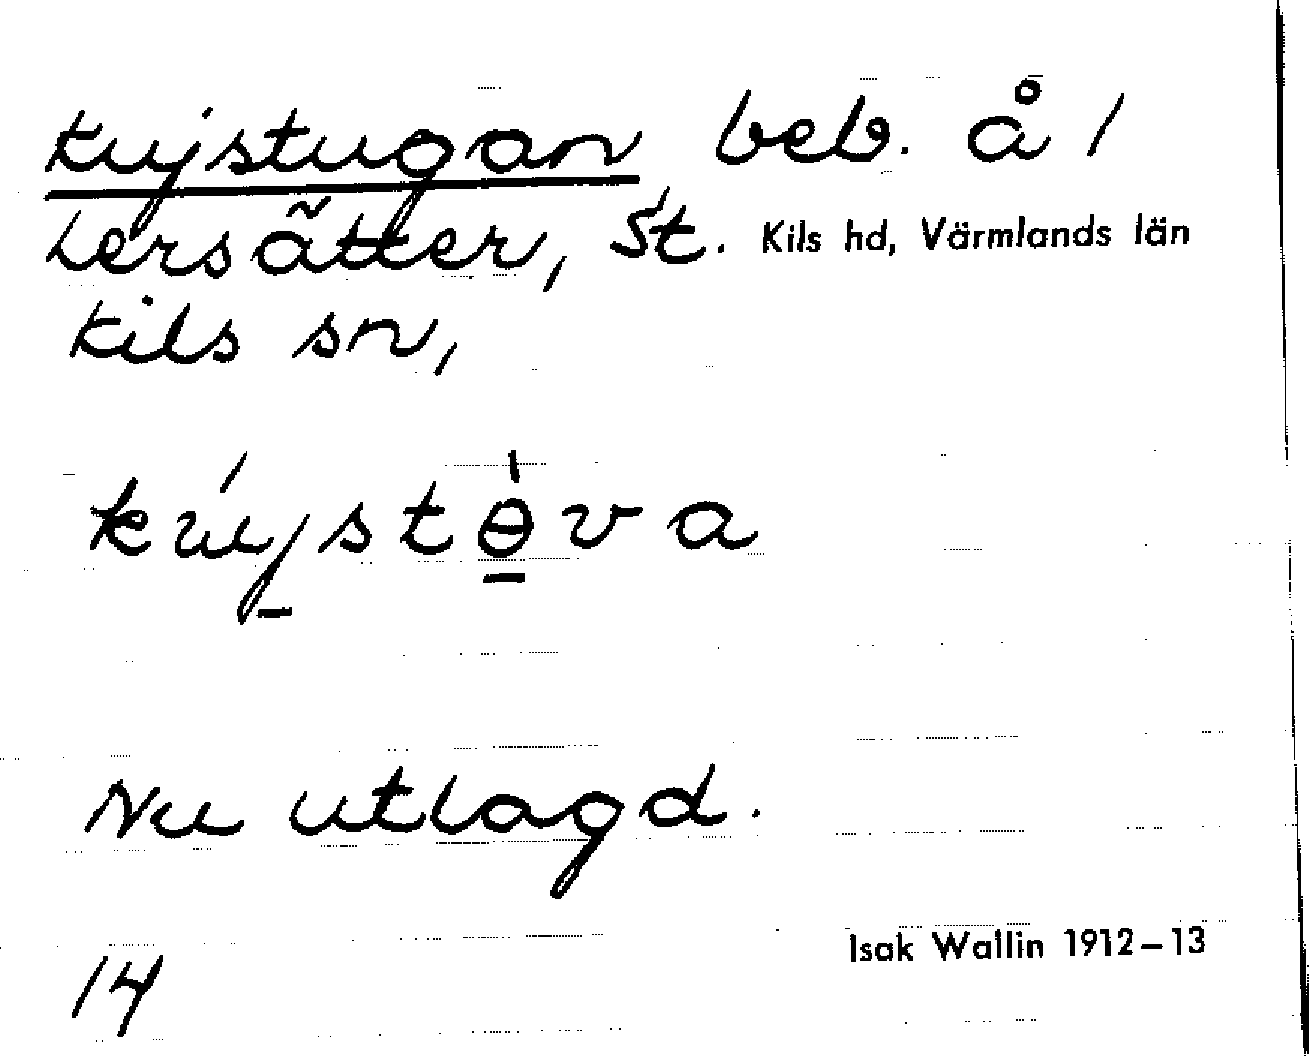 Kujstugan beb. å /
Lersätter, St. Kils hd, Värmlands län
Kils sn,
kújstɵ̀va
Nu utlagd.
Isak Wallin 1912–13
14